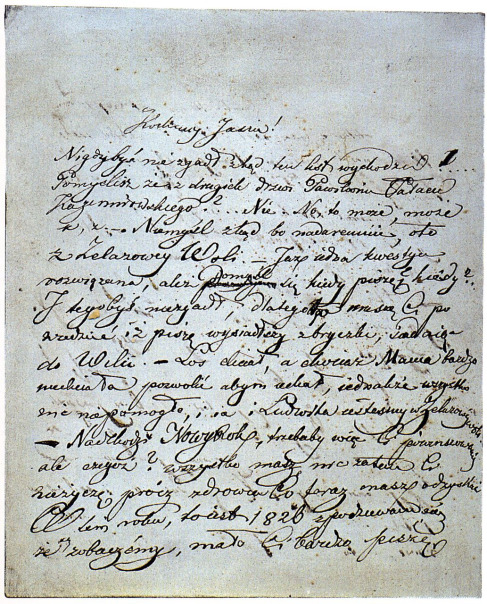 Kochany Jasiu!
Nigdybyś nie zgadł zkąd ten list wychodzi! ....
Pomyślisz że z drugich drzwi Pawilonu Pałacu
Kazimirowskiego? ... Nie. Nę, to może, może
z, z. – Niemyśl zkąd bo nadaremnie, oto
z Żelazowey Woli. – Już jedna kwestya
rozwiązana, ale Pomyśl się kiedy piszę, kiedy?..
I tegobyś niezjadł, dlatego muszę Ci po
wiedzieć iż piszę wysiadłszy z bryczki, siadaiąc
do Wilii. – Los chciał a chociaż Mama bardzo
niechciała pozwolić abym iechał, iednakże wszystko
nic niepomogło, i ia i Ludwika iesteśmy w Żelazowey woli
– Nadchodzi Nowyrok, trzebaby więc Ci powinszować,
ale czegoż? wszystko masz nic zatem Ci
nieżyczę prócz zdrowia co teraz masz odzyskać
W tem roku, to iest 1826 spodziewam się
że się zobaczémy, mało Ci bardzo piszę